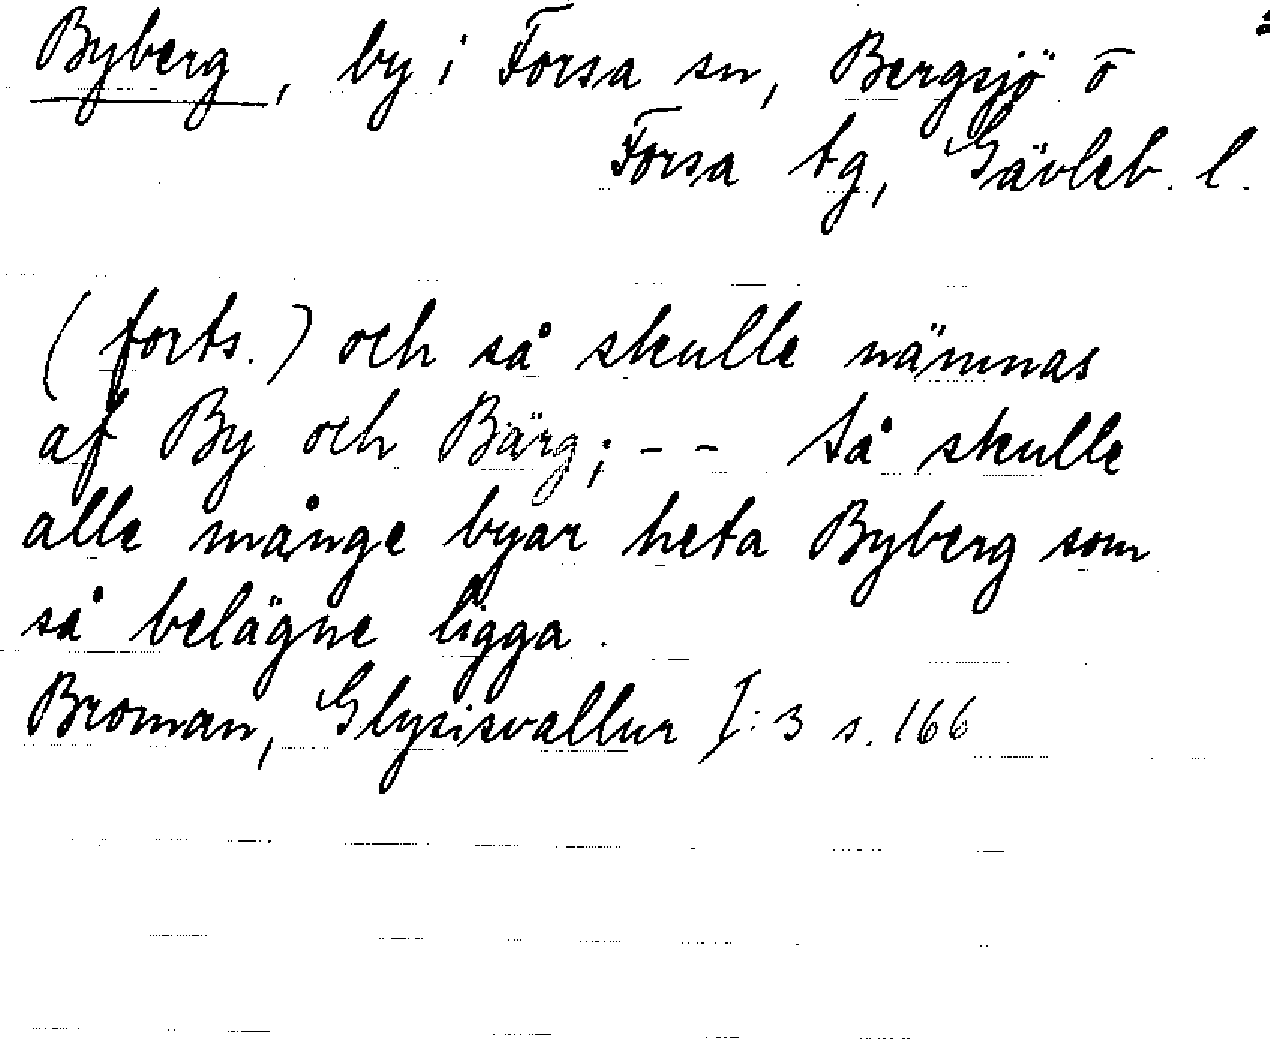 Byberg, by i Forsa sn, Bergsjö o
Forsa tg, Gävleb. l.
(forts.) och så skulle nämnas
af By och Bärg; - - Så skulle
alle månge byar heta Byberg som
så belägne ligga.
Broman, Glysisvallur I:3 s. 166